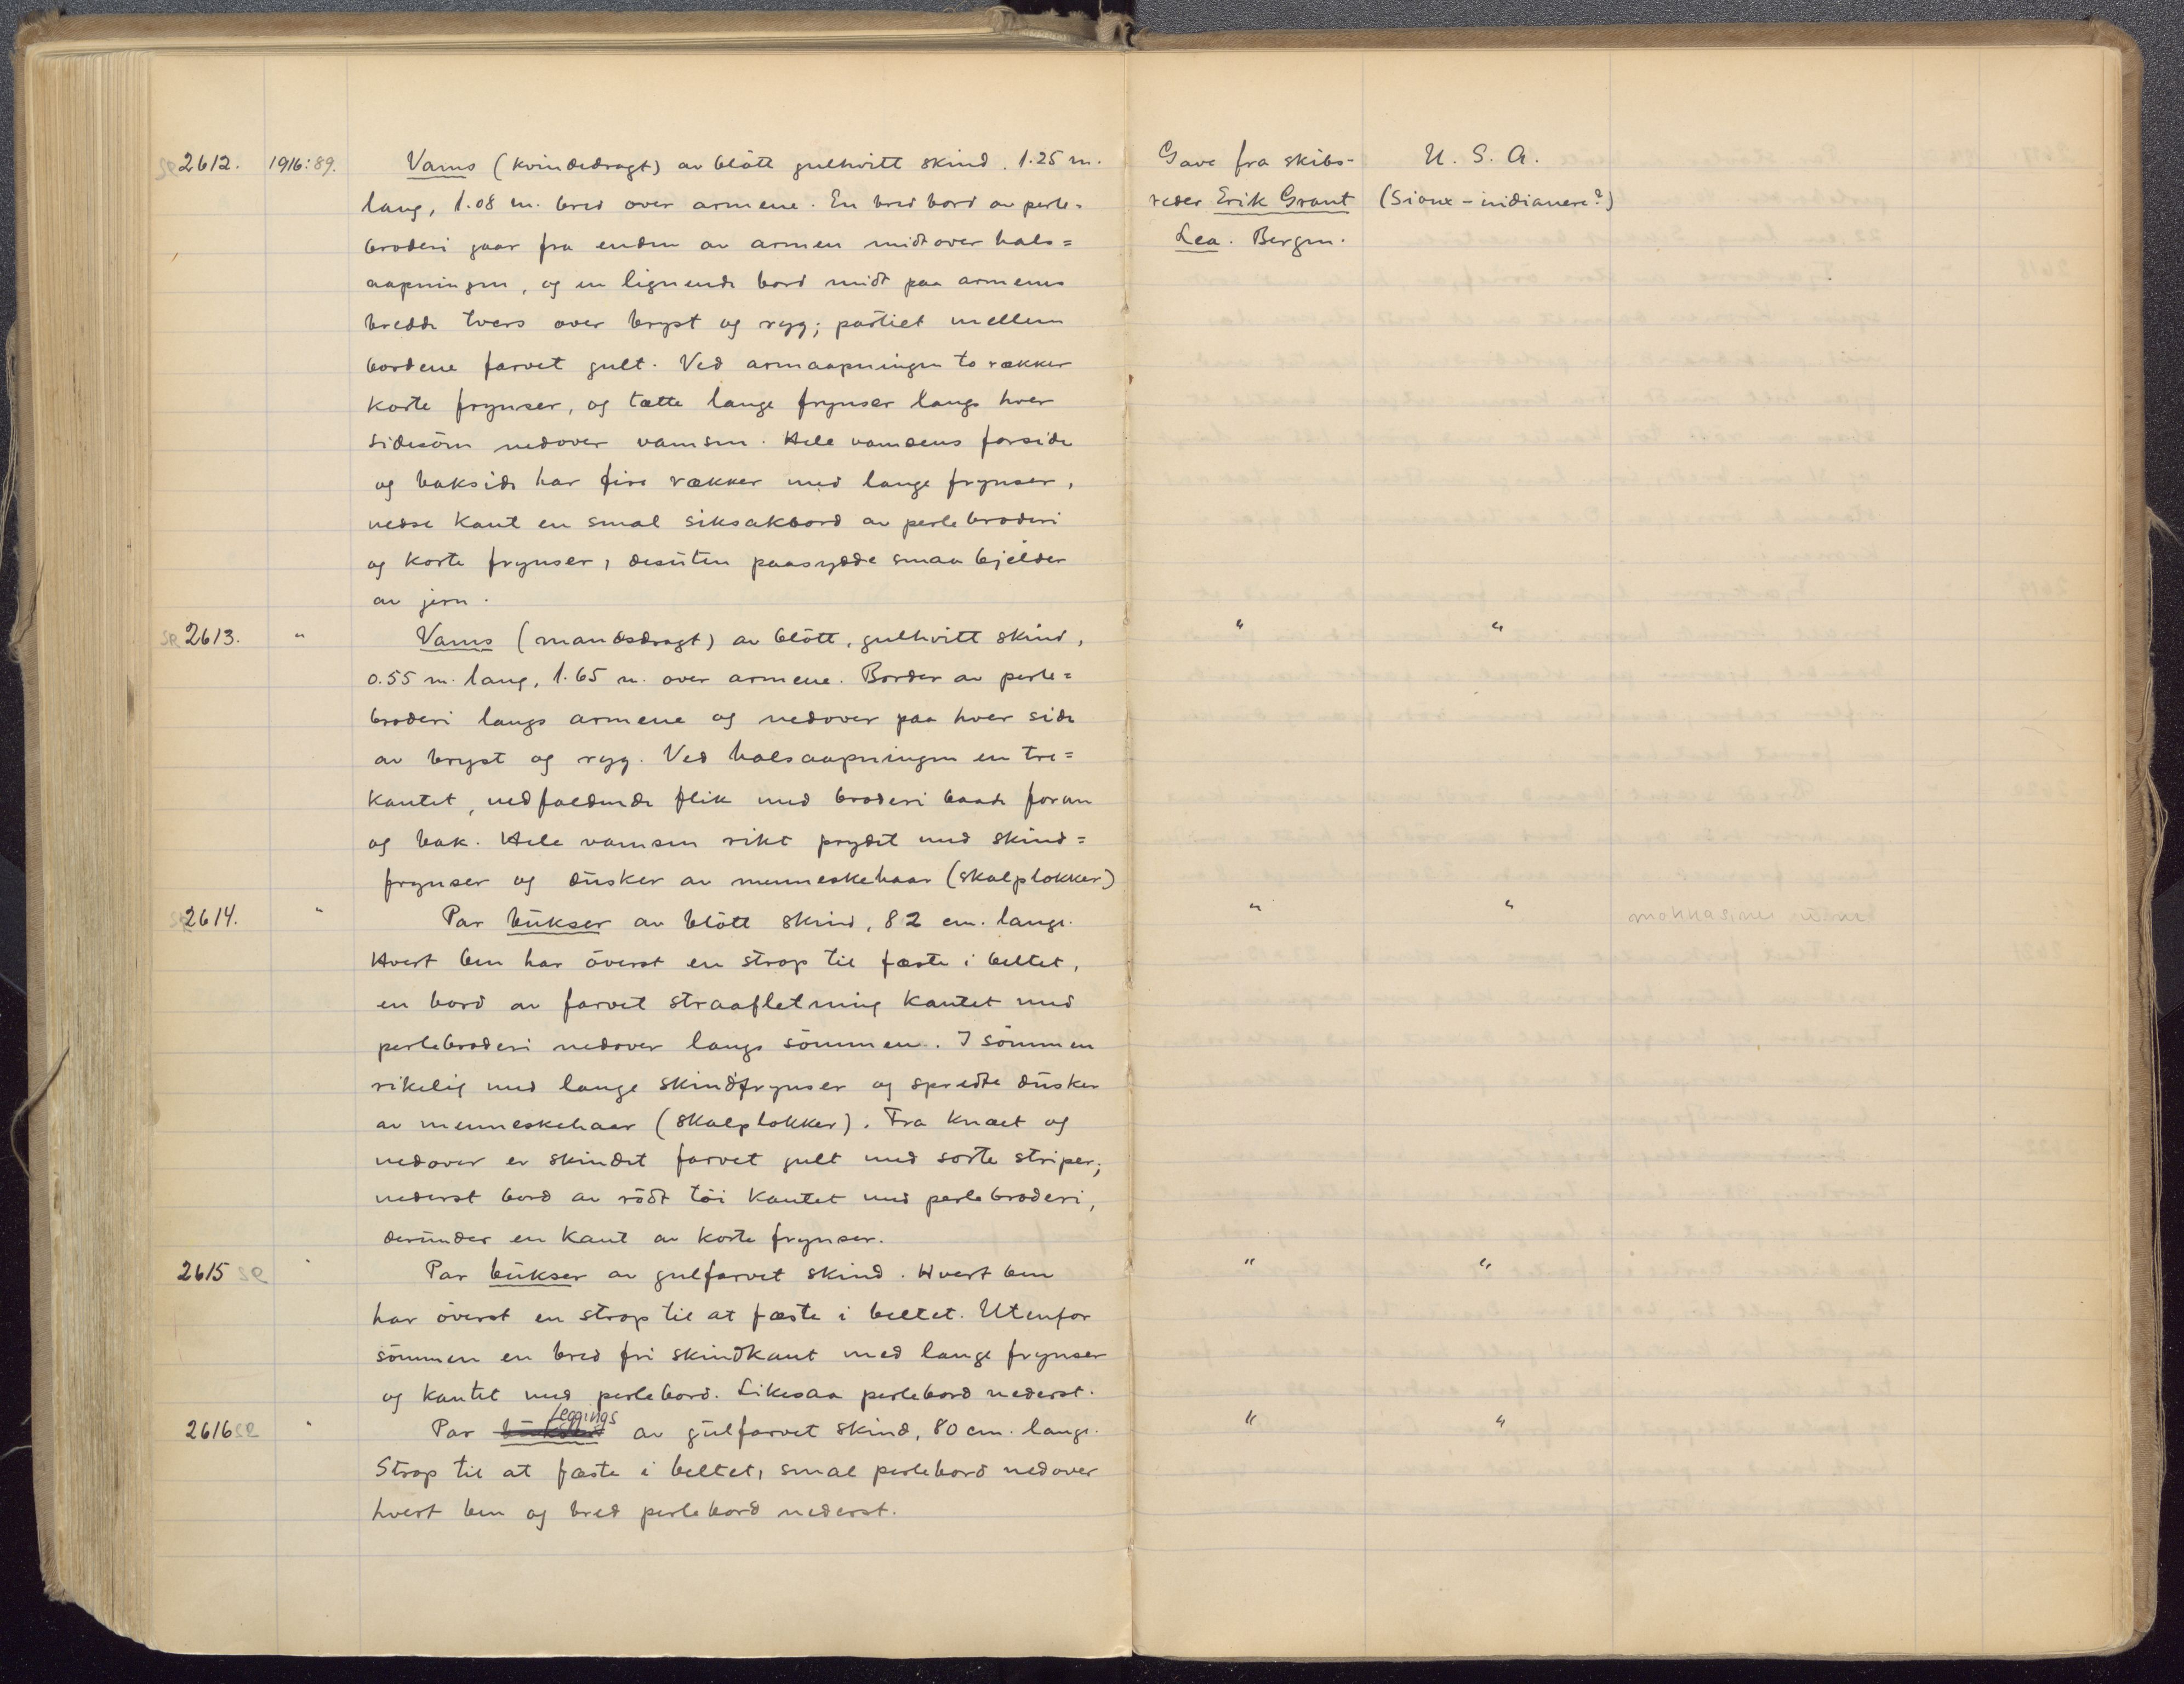 SR 2612. 1916:89. Vams (kvindedragt) av blött gulhvitt skind. 1.25 m. Gave fra skibs- U. S. A.
lang, 1.08 m. bred over armene. En bred bord av perle= reder Erik Grant (Sioux-indianere?)
broderi gaar fra enden av armen midt over hals= Lea. Bergen.
aapningen, og en lignende bord midt paa armenes
bredde tvers over bryst og ryg; partiet mellem
bordene farvet gult. Ved armaapningen to rækker
korte frynser, og tætte lange frynser langs hver
sidesöm nedover vamsen. Hele vamsens forside
og bakside har fire rækker med lange frynser,
nedre kant en smal siksakbord av perlebroderi
og korte frynser, desuten paasydde smaa bjelder
av jern.
SR 2613. " Vams (mandsdragt) av blött, gulhvitt skind, " "
0.55 m. lang, 1.65 m. over armene. Border av perle=
broderi langs armene og nedover paa hver side
av bryst og ryg. Ved halsaapningen en tre=
kantet, nedfaldende flik med broderi baade foran
og bak. Hele vamsen rikt prydet med skind=
frynser og dusker av menneskehaar (skalplokker)
SR 2614. " Par bukser av blött skind, 82 cm. lange. " "
Hvert ben har överst en strop til fæste i beltet,
en bord av farvet straafletning kantet med
perlebroderi nedover langs sömmen. I sömmen
rikelig med lange skindfrynser og spredte dusker
av menneskehaar (skalplokker). Fra knæet og
nedover er skindet farvet gult med sorte striper;
nederst bord av rödt töi kantet med perlebroderi,
derunder en kant av korte frynser.
2615 SR " Par bukser av gulfarvet skind. Hvert ben " "
har överst en strop til at fæste i beltet. Utenfor
sömmen en bred fri skindkant med lange frynser
og kantet med perlebord. Likesaa perlebord nederst.
Leggings
2616 SR " Par bukser av gulfarvet skind, 80 cm. lange. " "
Strop til at fæste i beltet, smal perlebord nedover
hvert ben og bred perlebord nederst.